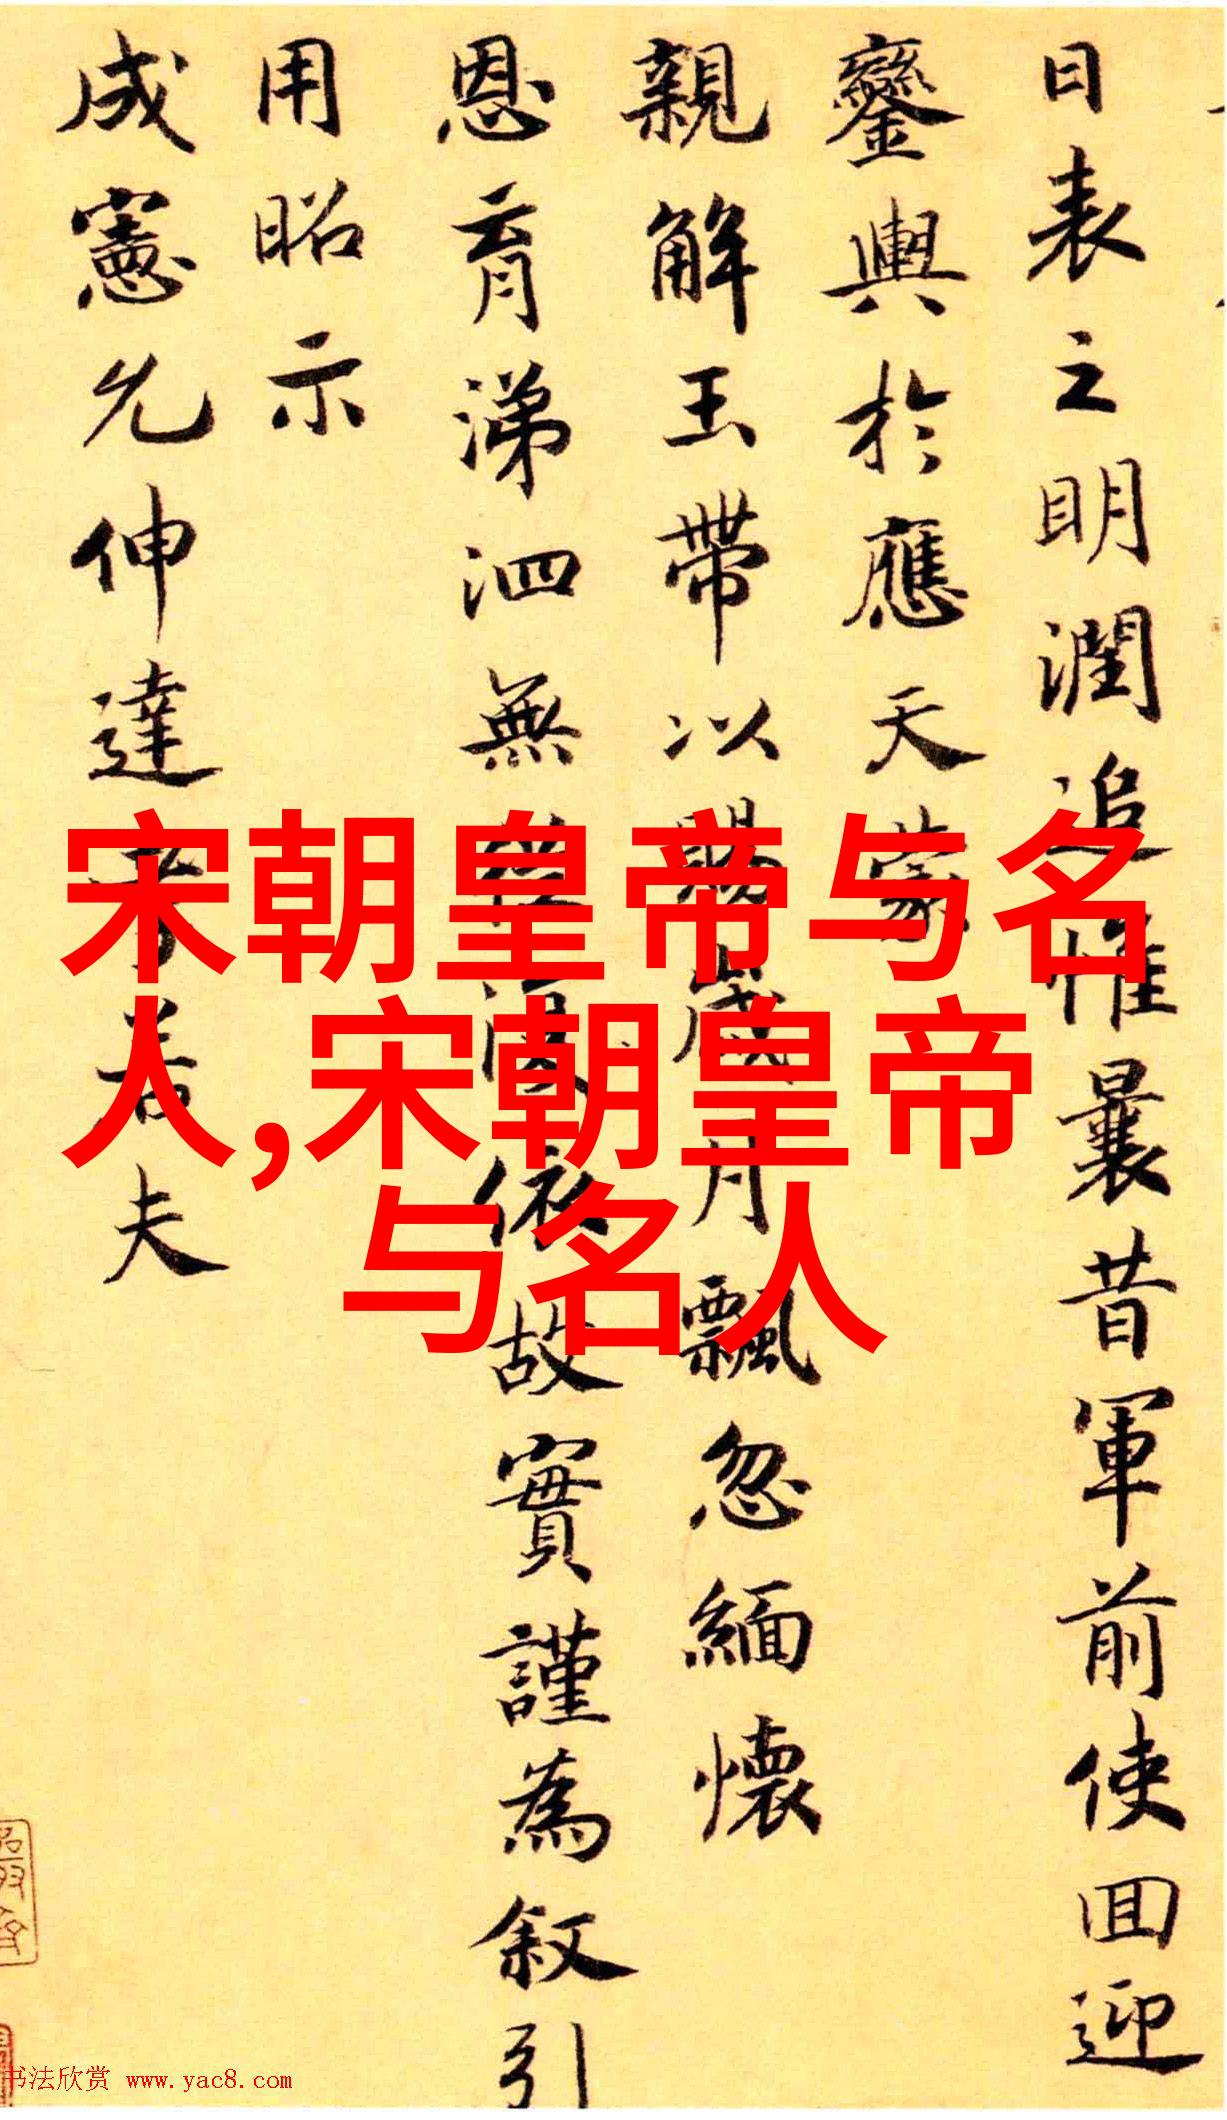 日表之明潤追惟曩昔軍前使回迎
鑾輿於應天蒙
親解玉帶以賜歲月飄忽緬懷
恩育涕泗無從漢依故實謹為叙引
用昭示
成憲允伸達孝若夫
宋朝皇帝与名
人,宋朝皇帝
与名人
书法欣赏 www.yac8.com